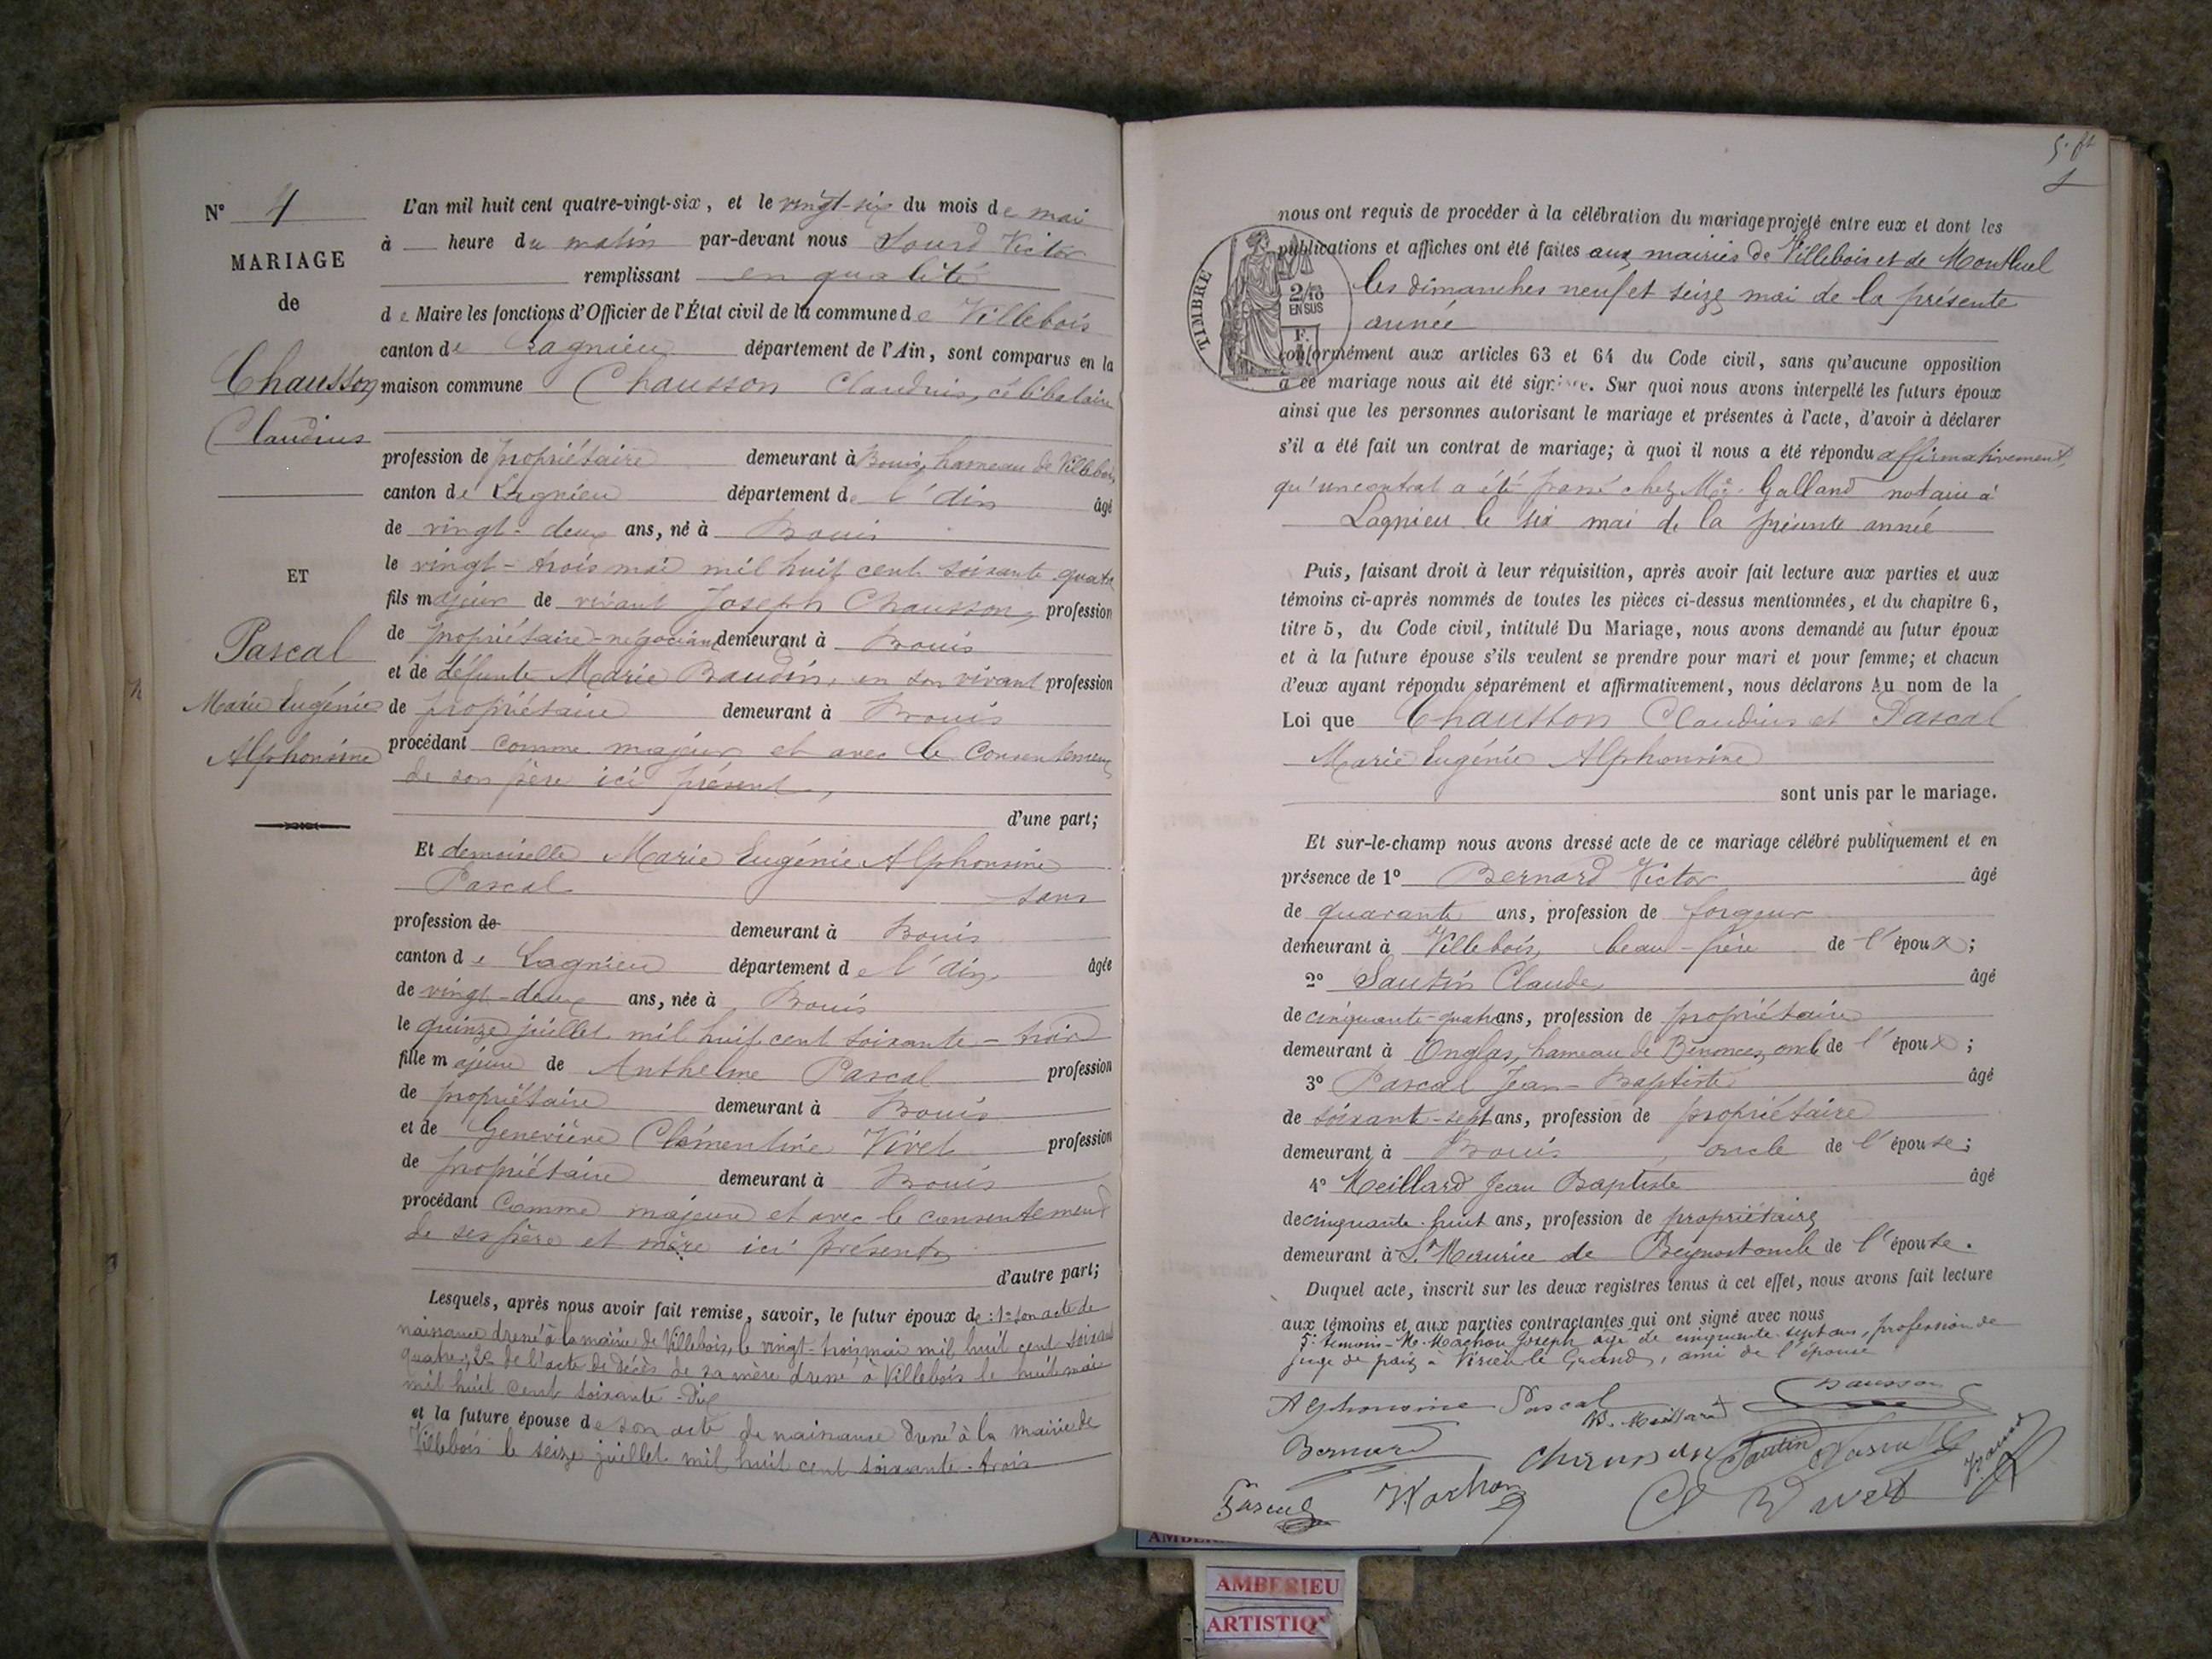 N° 4
MARIAGE
de
Chausson
Claudius
ET
Pascal
Marie Eugénie
Alphonsine
L'an mil huit cent quatre-vingt-six, et le vingt-six du mois de mai
à — heure du matin par-devant nous Sourd Victor
remplissant en qualité
de Maire les fonctions d'Officier de l'État civil de la commune de Villebois
canton de Lagnieu département de l'Ain, sont comparus en la
maison commune Chausson Claudius, célibataire
profession de propriétaire demeurant à Bouis, hameau de Villebois
canton de Lagnieu département de l'Ain âgé
de vingt-deux ans, né à Bouis
le vingt-trois mai mil huit cent soixante quatre
fils majeur de vivant Joseph Chausson, profession
de propriétaire-négociant demeurant à Bouis
et de défunte Marie Baudin, en son vivant profession
de propriétaire demeurant à Bouis
procédant comme majeur et avec le consentement
de son père ici présent,
d'une part;
Et demoiselle Marie Eugénie Alphonsine
Pascal sans
profession de demeurant à Bouis
canton de Lagnieu département de l'Ain, âgée
de vingt-deux ans, née à Bouis
le quinze juillet mil huit cent soixante-trois
fille majeure de Anthelme Pascal profession
de propriétaire demeurant à Bouis
et de Geneviève Clémentine Vivet profession
de propriétaire demeurant à Bouis
procédant comme majeure et avec le consentement
de ses père et mère ici présents
d'autre part;
Lesquels, après nous avoir fait remise, savoir, le futur époux de : 1° son acte de
naissance dressé à la mairie de Villebois, le vingt-trois mai mil huit cent soixante
quatre; 2° de l'acte de décès de sa mère dressé à Villebois le huit mai
mil huit cent soixante-dix
et la future épouse de son acte de naissance dressé à la mairie de
Villebois le seize juillet mil huit cent soixante-trois
5e ft
nous ont requis de procéder à la célébration du mariage projeté entre eux et dont les
publications et affiches ont été faites aux mairies de Villebois et de Montluel
les dimanches neuf et seize mai de la présente
année
TIMBRE
2/10
EN SUS
F.
conformément aux articles 63 et 64 du Code civil, sans qu'aucune opposition
à ce mariage nous ait été signifiée. Sur quoi nous avons interpellé les futurs époux
ainsi que les personnes autorisant le mariage et présentes à l'acte, d'avoir à déclarer
s'il a été fait un contrat de mariage; à quoi il nous a été répondu affirmativement,
qu'un contrat a été passé chez Me Galland notaire à
Lagnieu le six mai de la présente année
Puis, faisant droit à leur réquisition, après avoir fait lecture aux parties et aux
témoins ci-après nommés de toutes les pièces ci-dessus mentionnées, et du chapitre 6,
titre 5, du Code civil, intitulé Du Mariage, nous avons demandé au futur époux
et à la future épouse s'ils veulent se prendre pour mari et pour femme; et chacun
d'eux ayant répondu séparément et affirmativement, nous déclarons Au nom de la
Loi que Chausson Claudius et Pascal
Marie Eugénie Alphonsine
sont unis par le mariage.
Et sur-le-champ nous avons dressé acte de ce mariage célébré publiquement et en
présence de 1° Bernard Victor âgé
de quarante ans, profession de forgeur
demeurant à Villebois, beau-frère de l'époux;
2° Sautin Claude âgé
de cinquante-quatre ans, profession de propriétaire
demeurant à Onglas, hameau de Bénonces, oncle de l'époux;
3° Pascal Jean-Baptiste âgé
de soixante-sept ans, profession de propriétaire
demeurant à Bouis, oncle de l'épouse;
4° Meillard Jean Baptiste âgé
de cinquante-huit ans, profession de propriétaire
demeurant à St Maurice de Beynost oncle de l'épouse.
Duquel acte, inscrit sur les deux registres tenus à cet effet, nous avons fait lecture
aux témoins et aux parties contractantes qui ont signé avec nous
5e témoin - Mr Machon Joseph âgé de cinquante-sept ans, profession de
juge de paix à Virieu le Grand, ami de l'épouse
Alphonsine Pascal Chausson
B. Meillard
Bernard Chausson Sautin Pascal
Pascal Machon Vivet
AMBERIEU
ARTISTIQ